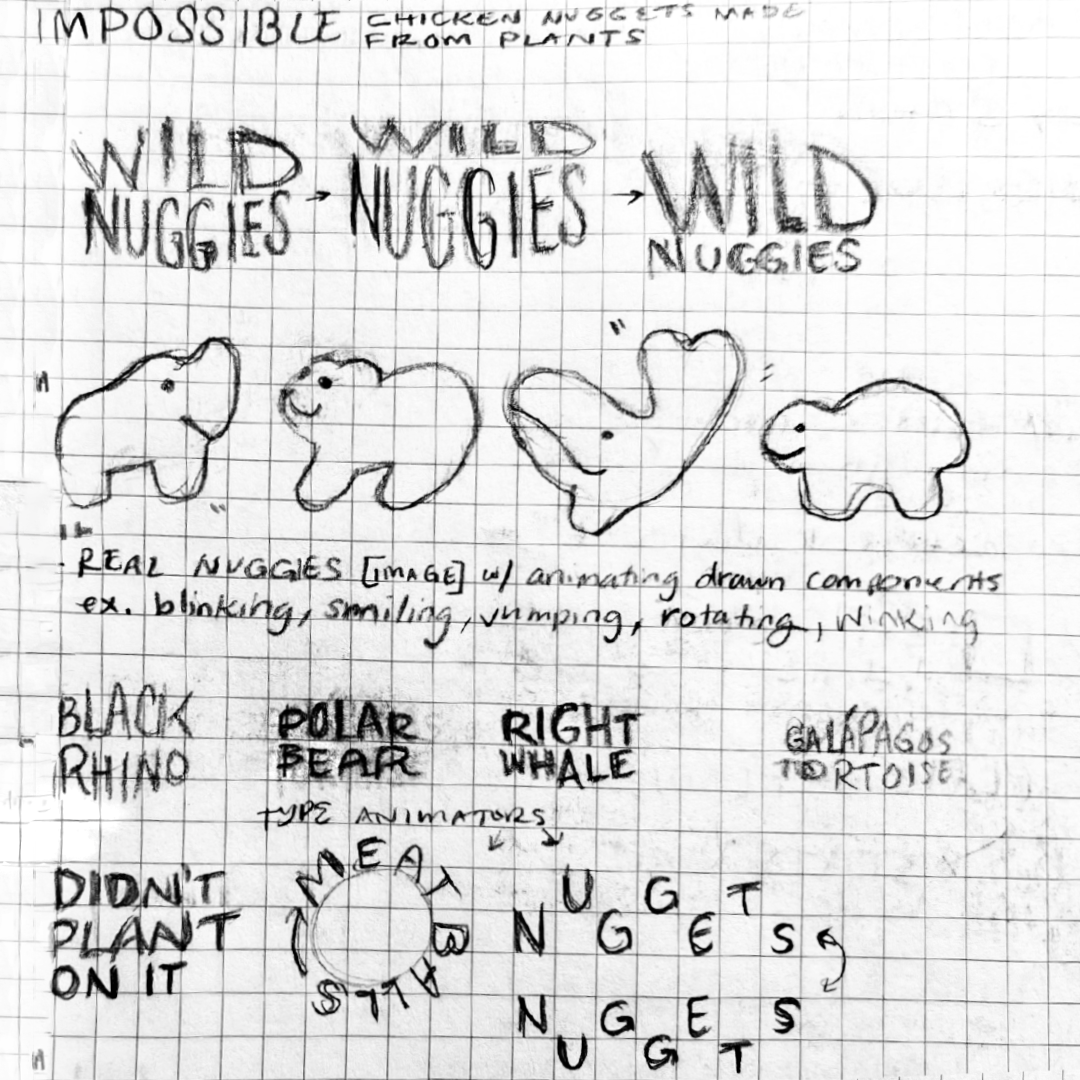 IMPOSSIBLE CHICKEN NUGGETS MADE
FROM PLANTS
WILD
NUGGIES
WILD
NUGGIES
WILD
NUGGIES
· REAL NUGGIES [IMAGE] w/ animating drawn components
ex. blinking, smiling, jumping, rotating, winking
BLACK
RHINO
POLAR
BEAR
RIGHT
WHALE
GALÁPAGOS
TORTOISE
TYPE ANIMATORS
DIDN'T
PLANT
ON IT
MEATBALLS
NUGGETS
NUGGETS